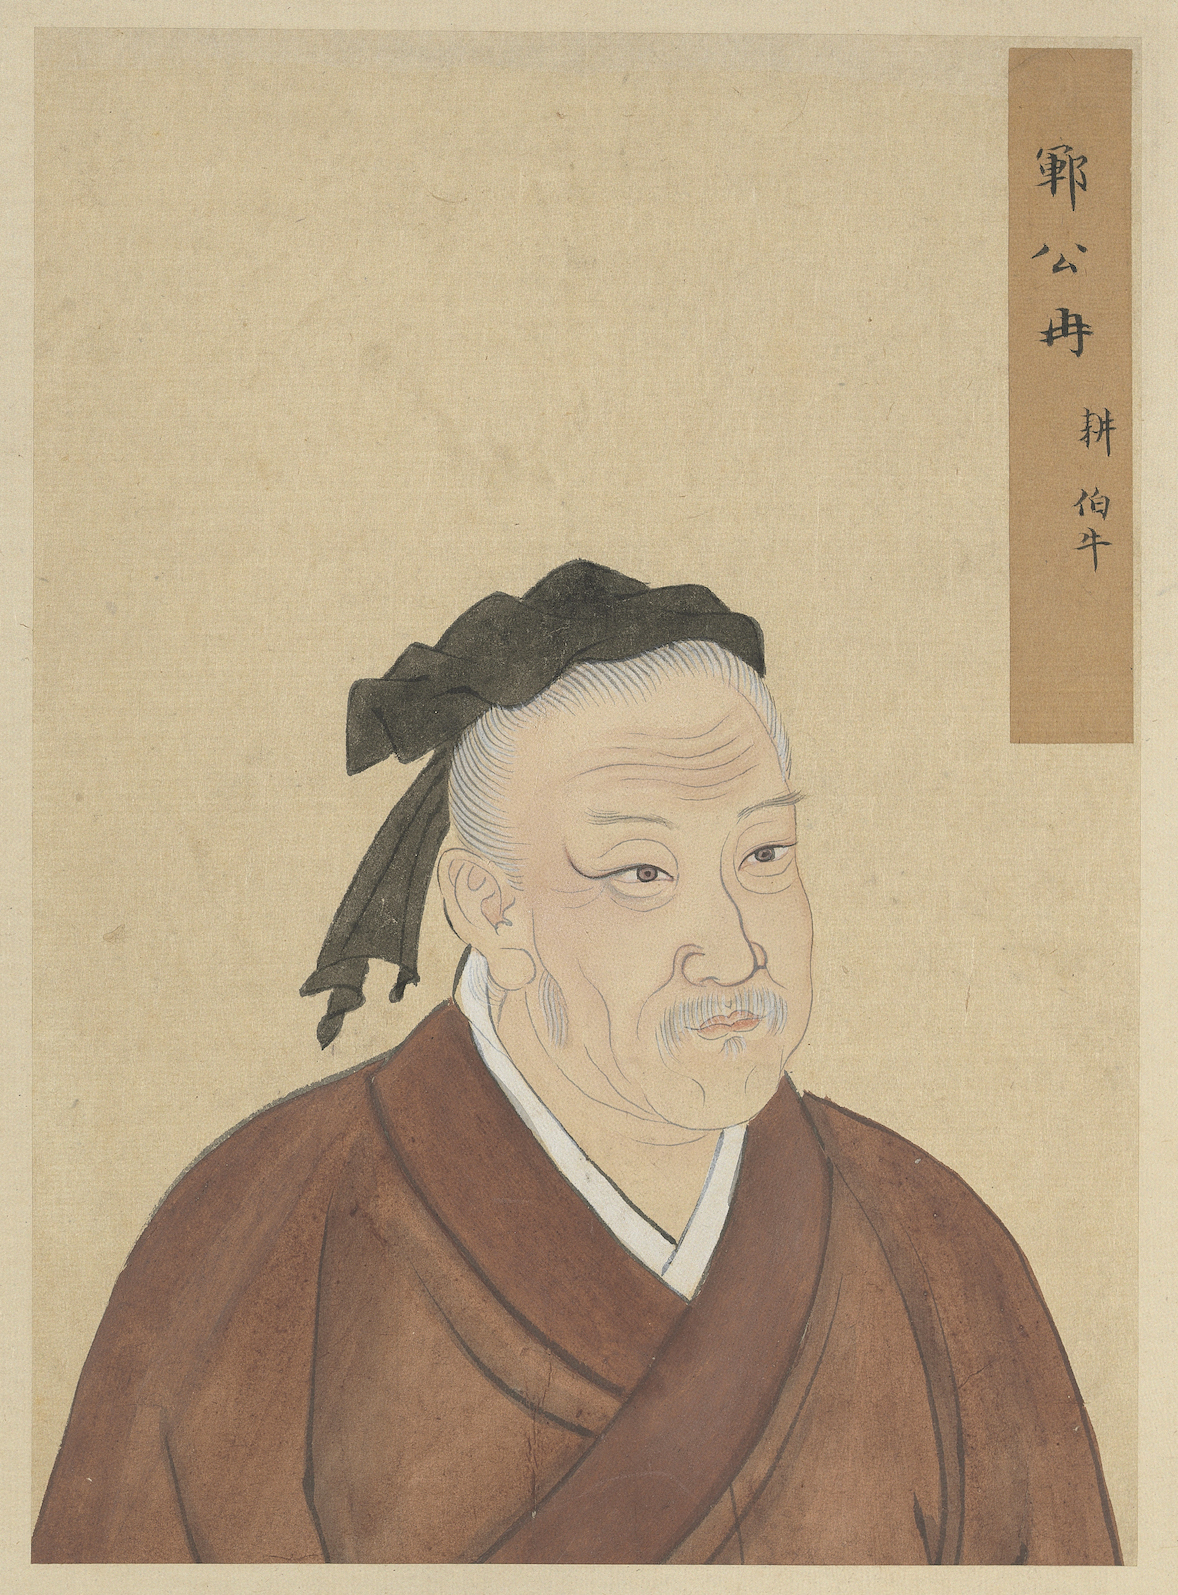 鄆公冉
耕伯牛